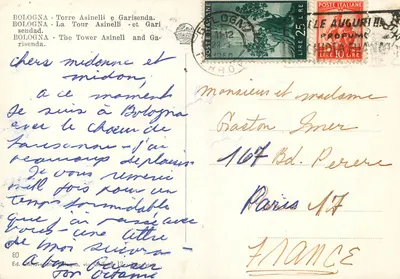 BOLOGNA - Torre Asinelli e Garisenda.
BOLOGNA - La Tour Asinelli et Gari
sendad.
BOLOGNA - The Tower Asinelli and Ga-
risenda.
BOLOGNA
11-12
LIRE 25
POSTE ITALIANE
LIRE 10
AUGURI
PROFUMO
chers médonne et
midon,
a ce moment
Je suis à Bologna
avec le choeur de
Lausanne - j'ai
beaucoup de plaisir
Je vous remercie
mille fois pour un
temps formidable
que j'ai passé avec
vous - une lettre
de moi suivra -
80
Ed.
monsieur et madame
Gaston
167 Bd. Pereire
Paris 17
FRANCE